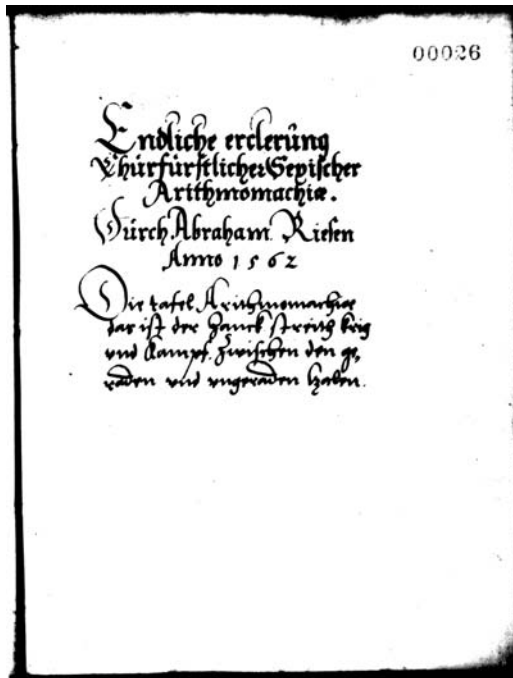 00026
Endliche erclerung
Churfürstlicher Sexischer
Arithmomachiæ.
Dürch Abraham Riesen
Anno 1562
Die tafel Arithmomachiae
das ist der Zanck streith krig
vnd Kampf. Zwischen den ge,
raden vnd vngeraden